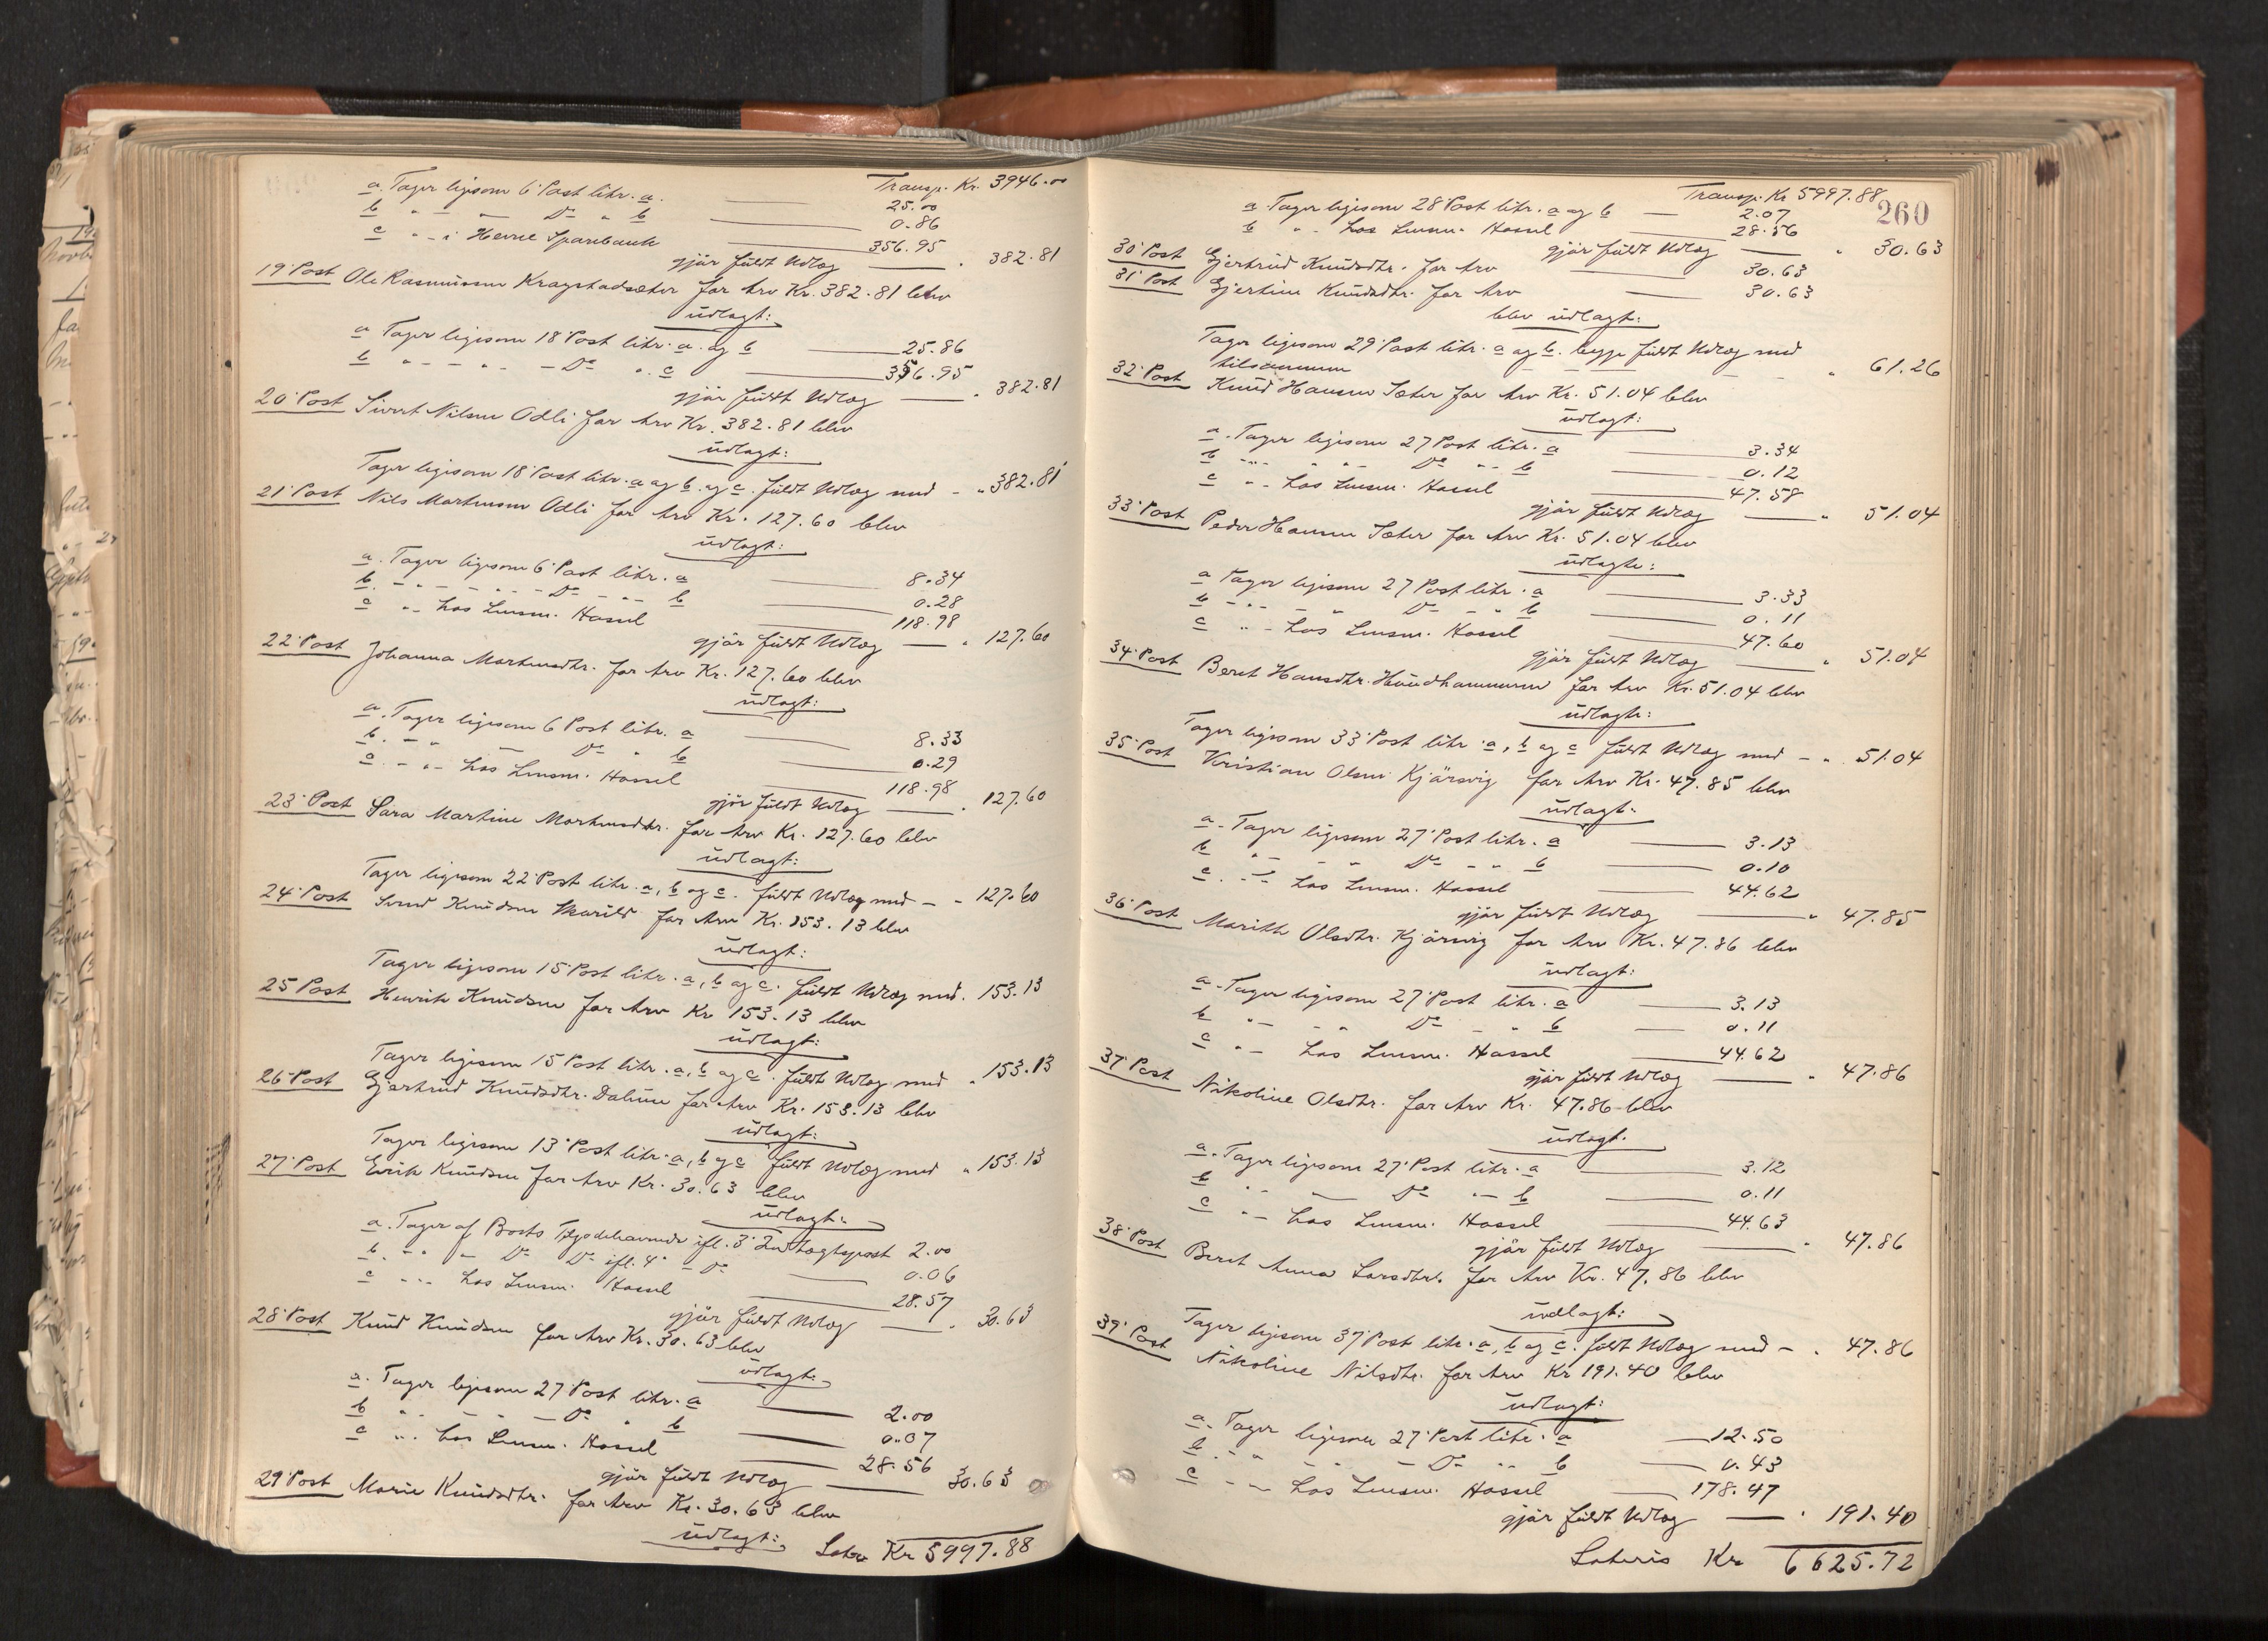 Transp. Kr. 3946.00
a. Tager ligesom 6' Post litr. a. 25.00
b " - - Do " b 0.86
c " - i Herrø Sparebank 356.95
gjør fuldt Udlæg - " 382.81
19' Post Ole Rasmussen Kragstadsæter for Arv Kr. 382.81 blev
udlagt:
a Tager ligesom 18' Post litr. a og b 25.86
b " - - " - Do " c 356.95
gjør fuldt Udlæg " 382.81
20' Post Sivert Nilsen Odli for Arv Kr. 382.81 blev
udlagt:
Tager ligesom 18' Post litr. a og b og c. fuldt Udlæg med - " 382.81
21' Post Nils Martinsen Odli for Arv Kr. 127.60 blev
udlagt:
a. Tager ligesom 6' Post litr. a 8.34
b. - " - " - Do - " - b 0.28
c " - hos Lensm. Hassel 118.98
gjør fuldt Udlæg " 127.60
22' Post Johanna Martinsdtr. for Arv Kr. 127.60 blev
udlagt:
a. Tager ligesom 6 Post litr. a 8.33
b. - " - Do " b 0.29
c - " - hos Lensm. Hassel 118.98
gjør fuldt Udlæg " 127.60
23' Post Sara Martine Martinsdtr. for Arv Kr. 127.60 blev
udlagt:
Tager ligesom 22' Post litr. a, b og c. fuldt Udlæg med - - 127.60
24' Post Knudsen for Arv Kr. 153.13 blev
udlagt:
Tager ligesom 15' Post litr. a, b og c. fuldt Udlæg med. 153.13
25 Post Henrik Knudsen for Arv Kr 153.13 blev
udlagt:
Tager ligesom 15 Post litr. a, b og c. fuldt Udlæg med " 153.13
26' Post Gjertrud Knudsdtr. Dalum for Arv Kr. 153.13 blev
udlagt:
Tager ligesom 13' Post litr. a, b og c fuldt Udlæg med " 153.13
27' Post Erik Knudsen for Arv Kr. 30.63 blev
udlagt:
a. Tager af Boets Tilgodehavende ifl. 3' Indtægtspost 2.00
b. " " - Do Do ifl. 4' - Do 0.06
c " - - hos Lensm. Hassel 28.57
gjør fuldt Udlæg " 30.63
28' Post Knud Knudsen for Arv Kr. 30.63 blev
udlagt:
a. Tager ligesom 27 Post litr. a 2.00
b " - - - Do " b 0.07
c " - hos Lensm. Hassel 28.56
gjør fuldt Udlæg 30.63
29' Post Marie Knudsdtr. for Arv Kr. 30.63 blev
udlagt:
Latus Kr 5997.88
Transp. Kr 5997.88
260
a Tager ligesom 28 Post litr. a og b 2.07
b " - hos Lensm. Hassel 28.56
gjør fuldt Udlæg " 30.63
30' Post Gjertrud Knudsdtr. for Arv 30.63
31' Post Gjertine Knudsdtr. for Arv 30.63
blev udlagt:
Tager ligesom 29' Post litr. a og b. begge fuldt Udlæg med
tilsammen " 61.26
32' Post Knud Hansen Sæter for Arv Kr. 51.04 blev
udlagt:
a. Tager ligesom 27 Post litr. a 3.34
b " - " " - Do " - b 0.12
c " - hos Lensm. Hassel 47.58
gjør fuldt Udlæg " 51.04
33' Post Peder Hansen Sæter for Arv Kr. 51.04 blev
udlagt:
a Tager ligesom 27 Post litr. a 3.33
b - " - - " Do - " b 0.11
c " - hos Lensm. Hassel 47.60
gjør fuldt Udlæg " 51.04
34' Post Beret Hansdtr. Hundhammeren for Arv Kr. 51.04 blev
udlagt:
Tager ligesom 33' Post litr. a, b og c fuldt Udlæg med - " 51.04
35' Post Kristian Olsen Kjärsvig for Arv Kr. 47.85 blev
udlagt.
a. Tager ligesom 27' Post litr. a 3.13
b " - - " Do - " b 0.10
c. " - hos Lensm. Hassel 44.62
gjør fuldt Udlæg " 47.85
36' Post Marith Olsdtr. Kjärsvig for Arv Kr. 47.86 blev
udlagt:
a. Tager ligesom 27' Post litr. a 3.13
b " - - " Do - " b 0.11
c " - hos Lensm. Hassel 44.62
gjør fuldt Udlæg " 47.86
37' Post Nikoline Olsdtr. for Arv Kr. 47.86 blev
udlagt.
a. Tager ligesom 27' Post litr. a 3.12
b " - - Do " - b 0.11
c " - hos Lensm. Hassel 44.63
gjør fuldt Udlæg " 47.86
38' Post Berit Anna Larsdtr. for Arv Kr. 47.86 blev
udlagt:
Tager ligesom 37' Post litr. a, b og c. fuldt Udlæg med - " 47.86
39' Post Nikoline Nilsdtr. for Arv Kr 191.40 blev
udlagt:
a. Tager ligesom 27' Post litr. a 12.50
b " - " - - Do " - b 0.43
c - - hos Lensm. Hassel 178.47
gjør fuldt Udlæg " 191.40
Lateris Kr 6625.72